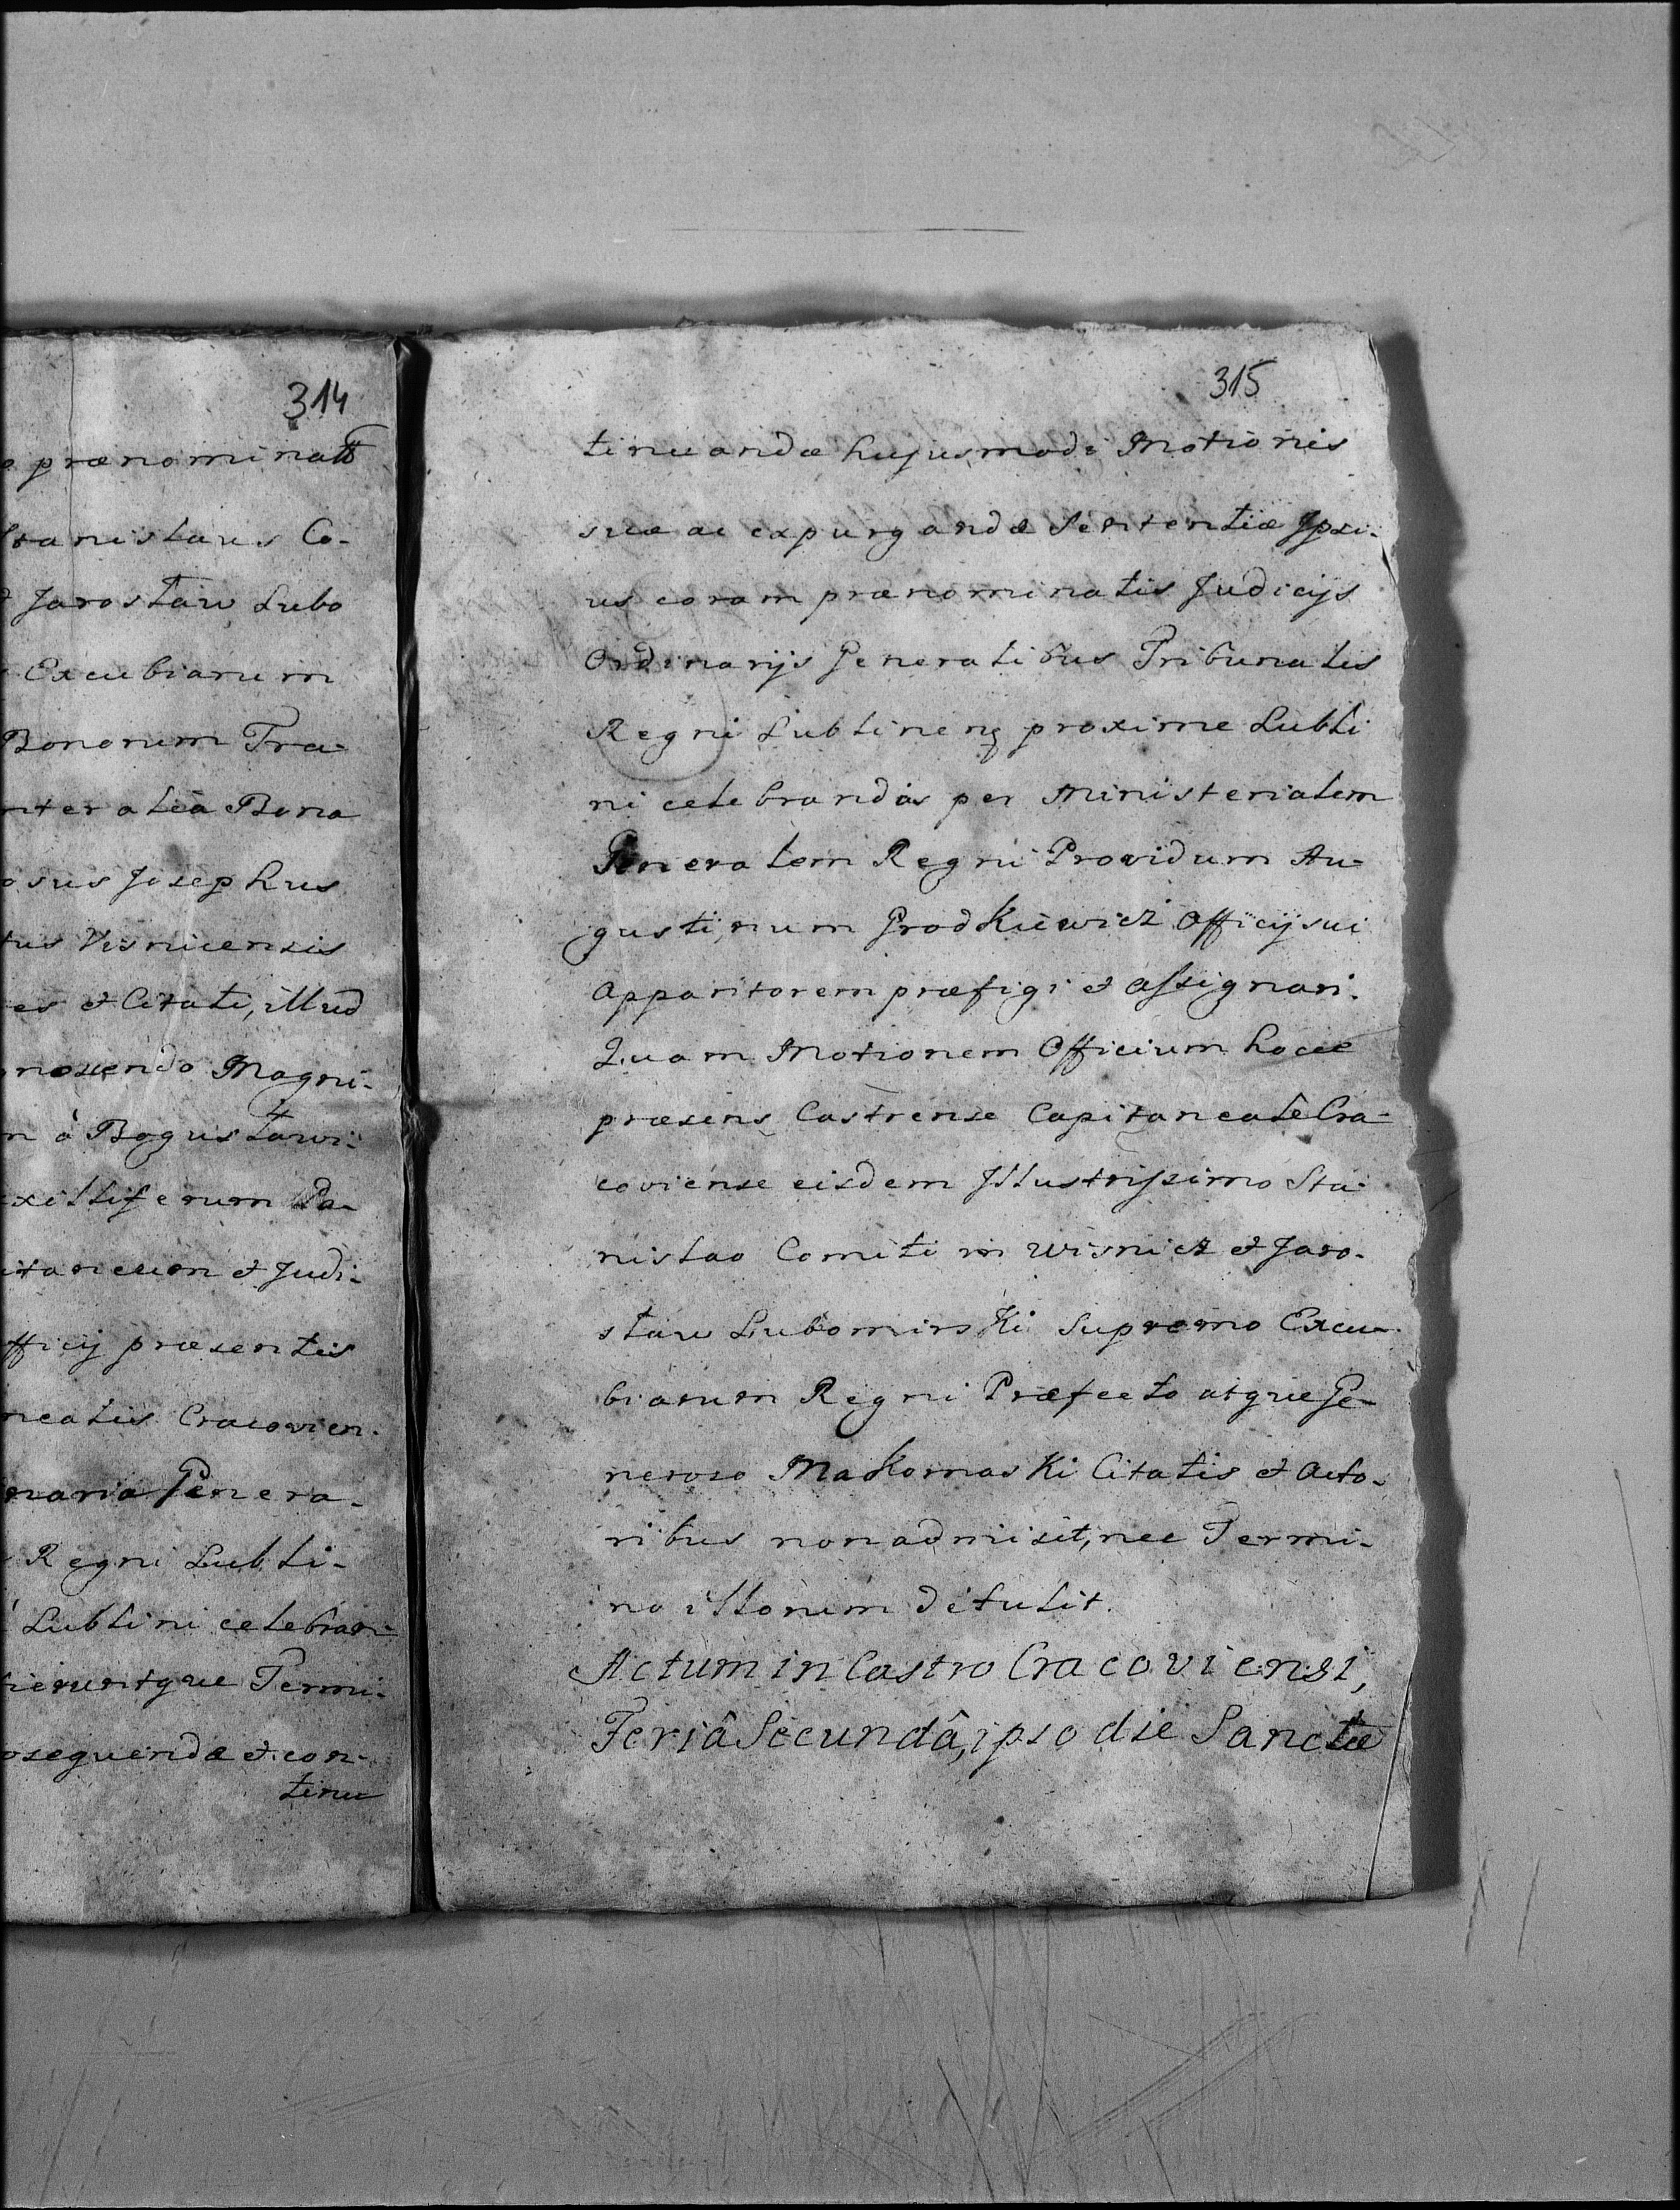 314
prænominatô
Stanislaus Co-
Jarosław Lubo
Excubiarum
Bonorum Tra-
alia Bona
Josephus
Visnicensis
et Citati, illud
Magni-
à Bogusławi-
Pa-
et Judi-
præsentis
Cracovien.
Genera-
Regni Lubli-
Lublini celebran-
Termi-
et con-
tinu
315
tinuandæ hujusmodi Motionis
suæ ac expurgandæ Sententiæ Ipsi-
us coram prænominatis Judicijs
Ordinarijs Generalibus Tribunalis
Regni Lublinenſ proxime Lubli
ni celebrandis per Ministerialem
Generalem Regni Providum Au-
gustinum Grodkiewicz Officij sui
Apparitorem præfigi et assignari.
Quam Motionem Officium hocce
præsens Castrense Capitaneale Cra-
coviense eisdem Illustrissimo Sta-
nislao Comiti in Wisnicz et Jaro-
sław Lubomirski Supremo Excu-
biarum Regni Præfecto atque Ge-
neroso Makomaski Citatis et Acto-
ribus non admisit, nec Termi-
no illorum detulit.
Actum in Castro Cracoviensi,
Feriâ Secundâ, ipso die Sanctæ